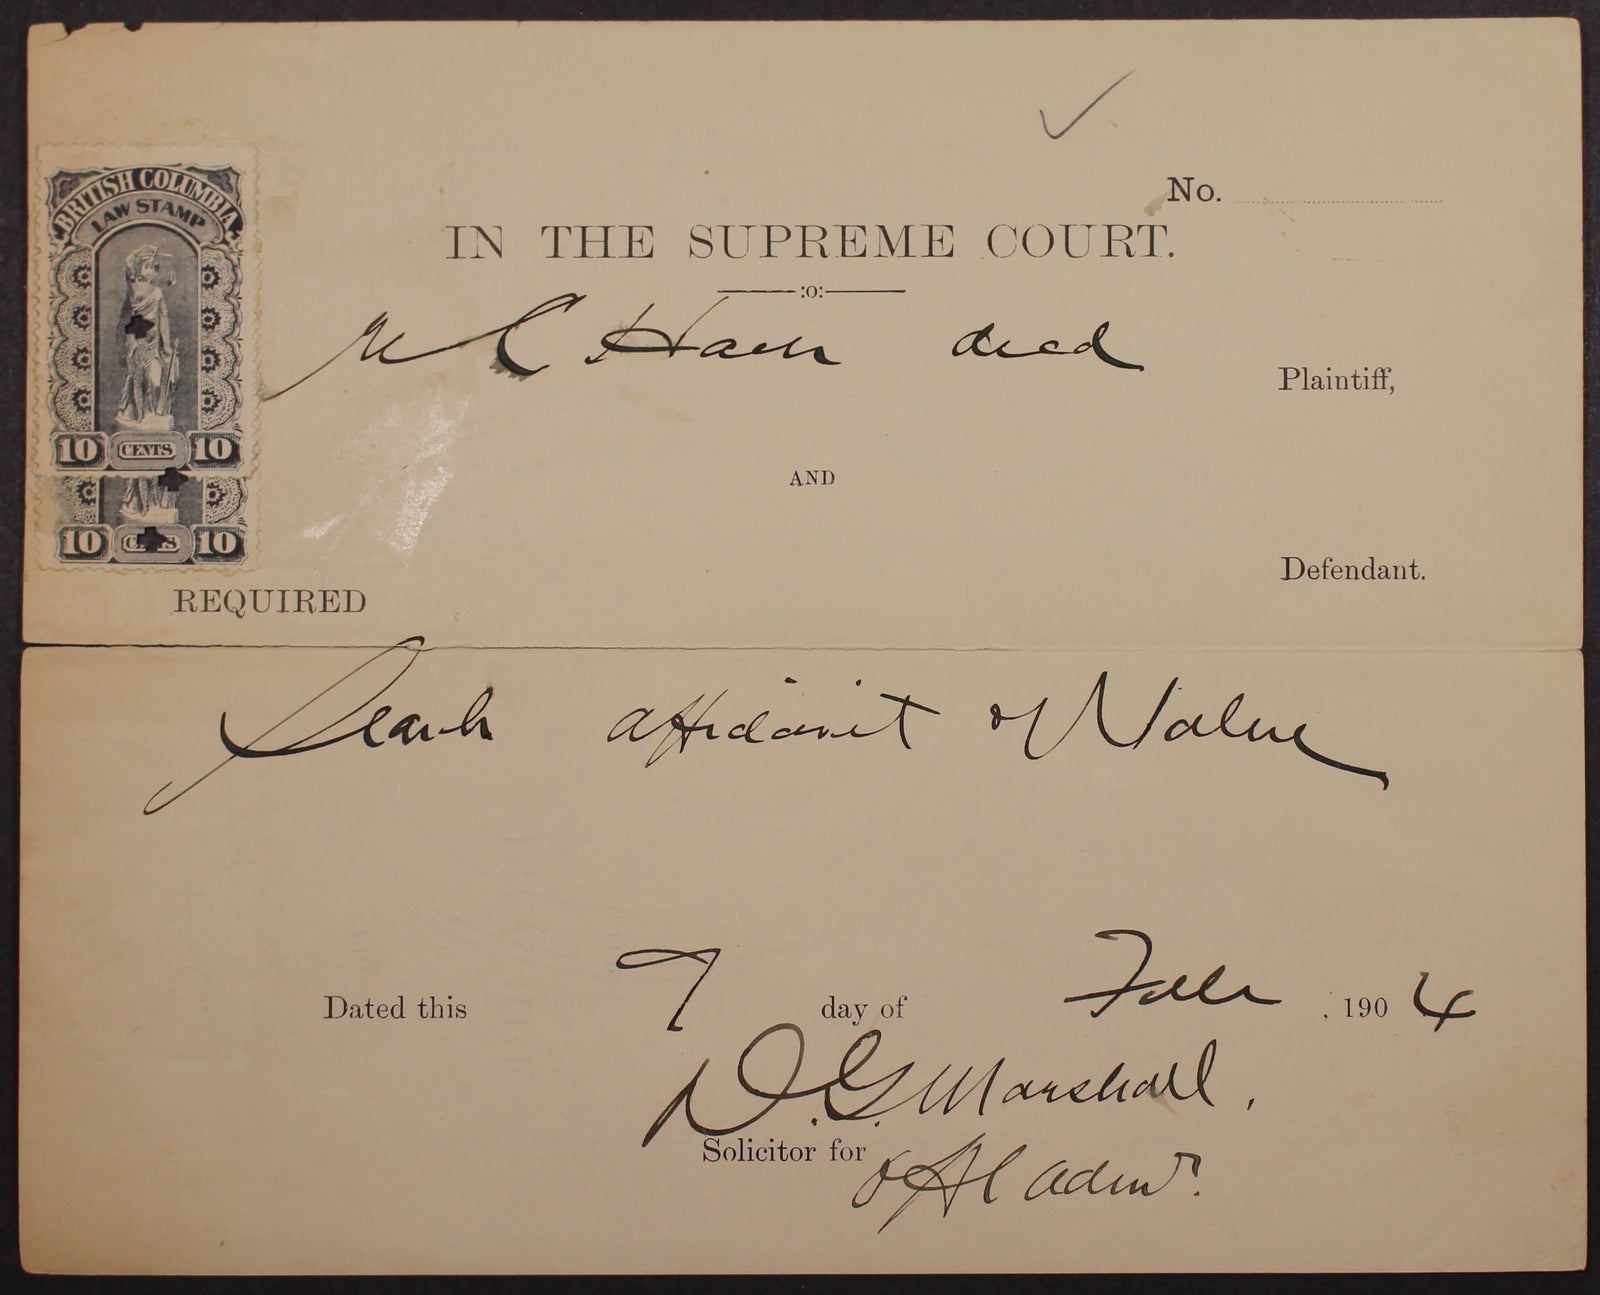 No.
IN THE SUPREME COURT.
:o:
BRITISH COLUMBIA
LAW STAMP
10 CENTS 10
10 CENTS 10
decd
Plaintiff,
AND
Defendant.
REQUIRED
Search affidavit of Value
Dated this 7 day of Feb , 190 4
D. G. Marshall.
Solicitor for